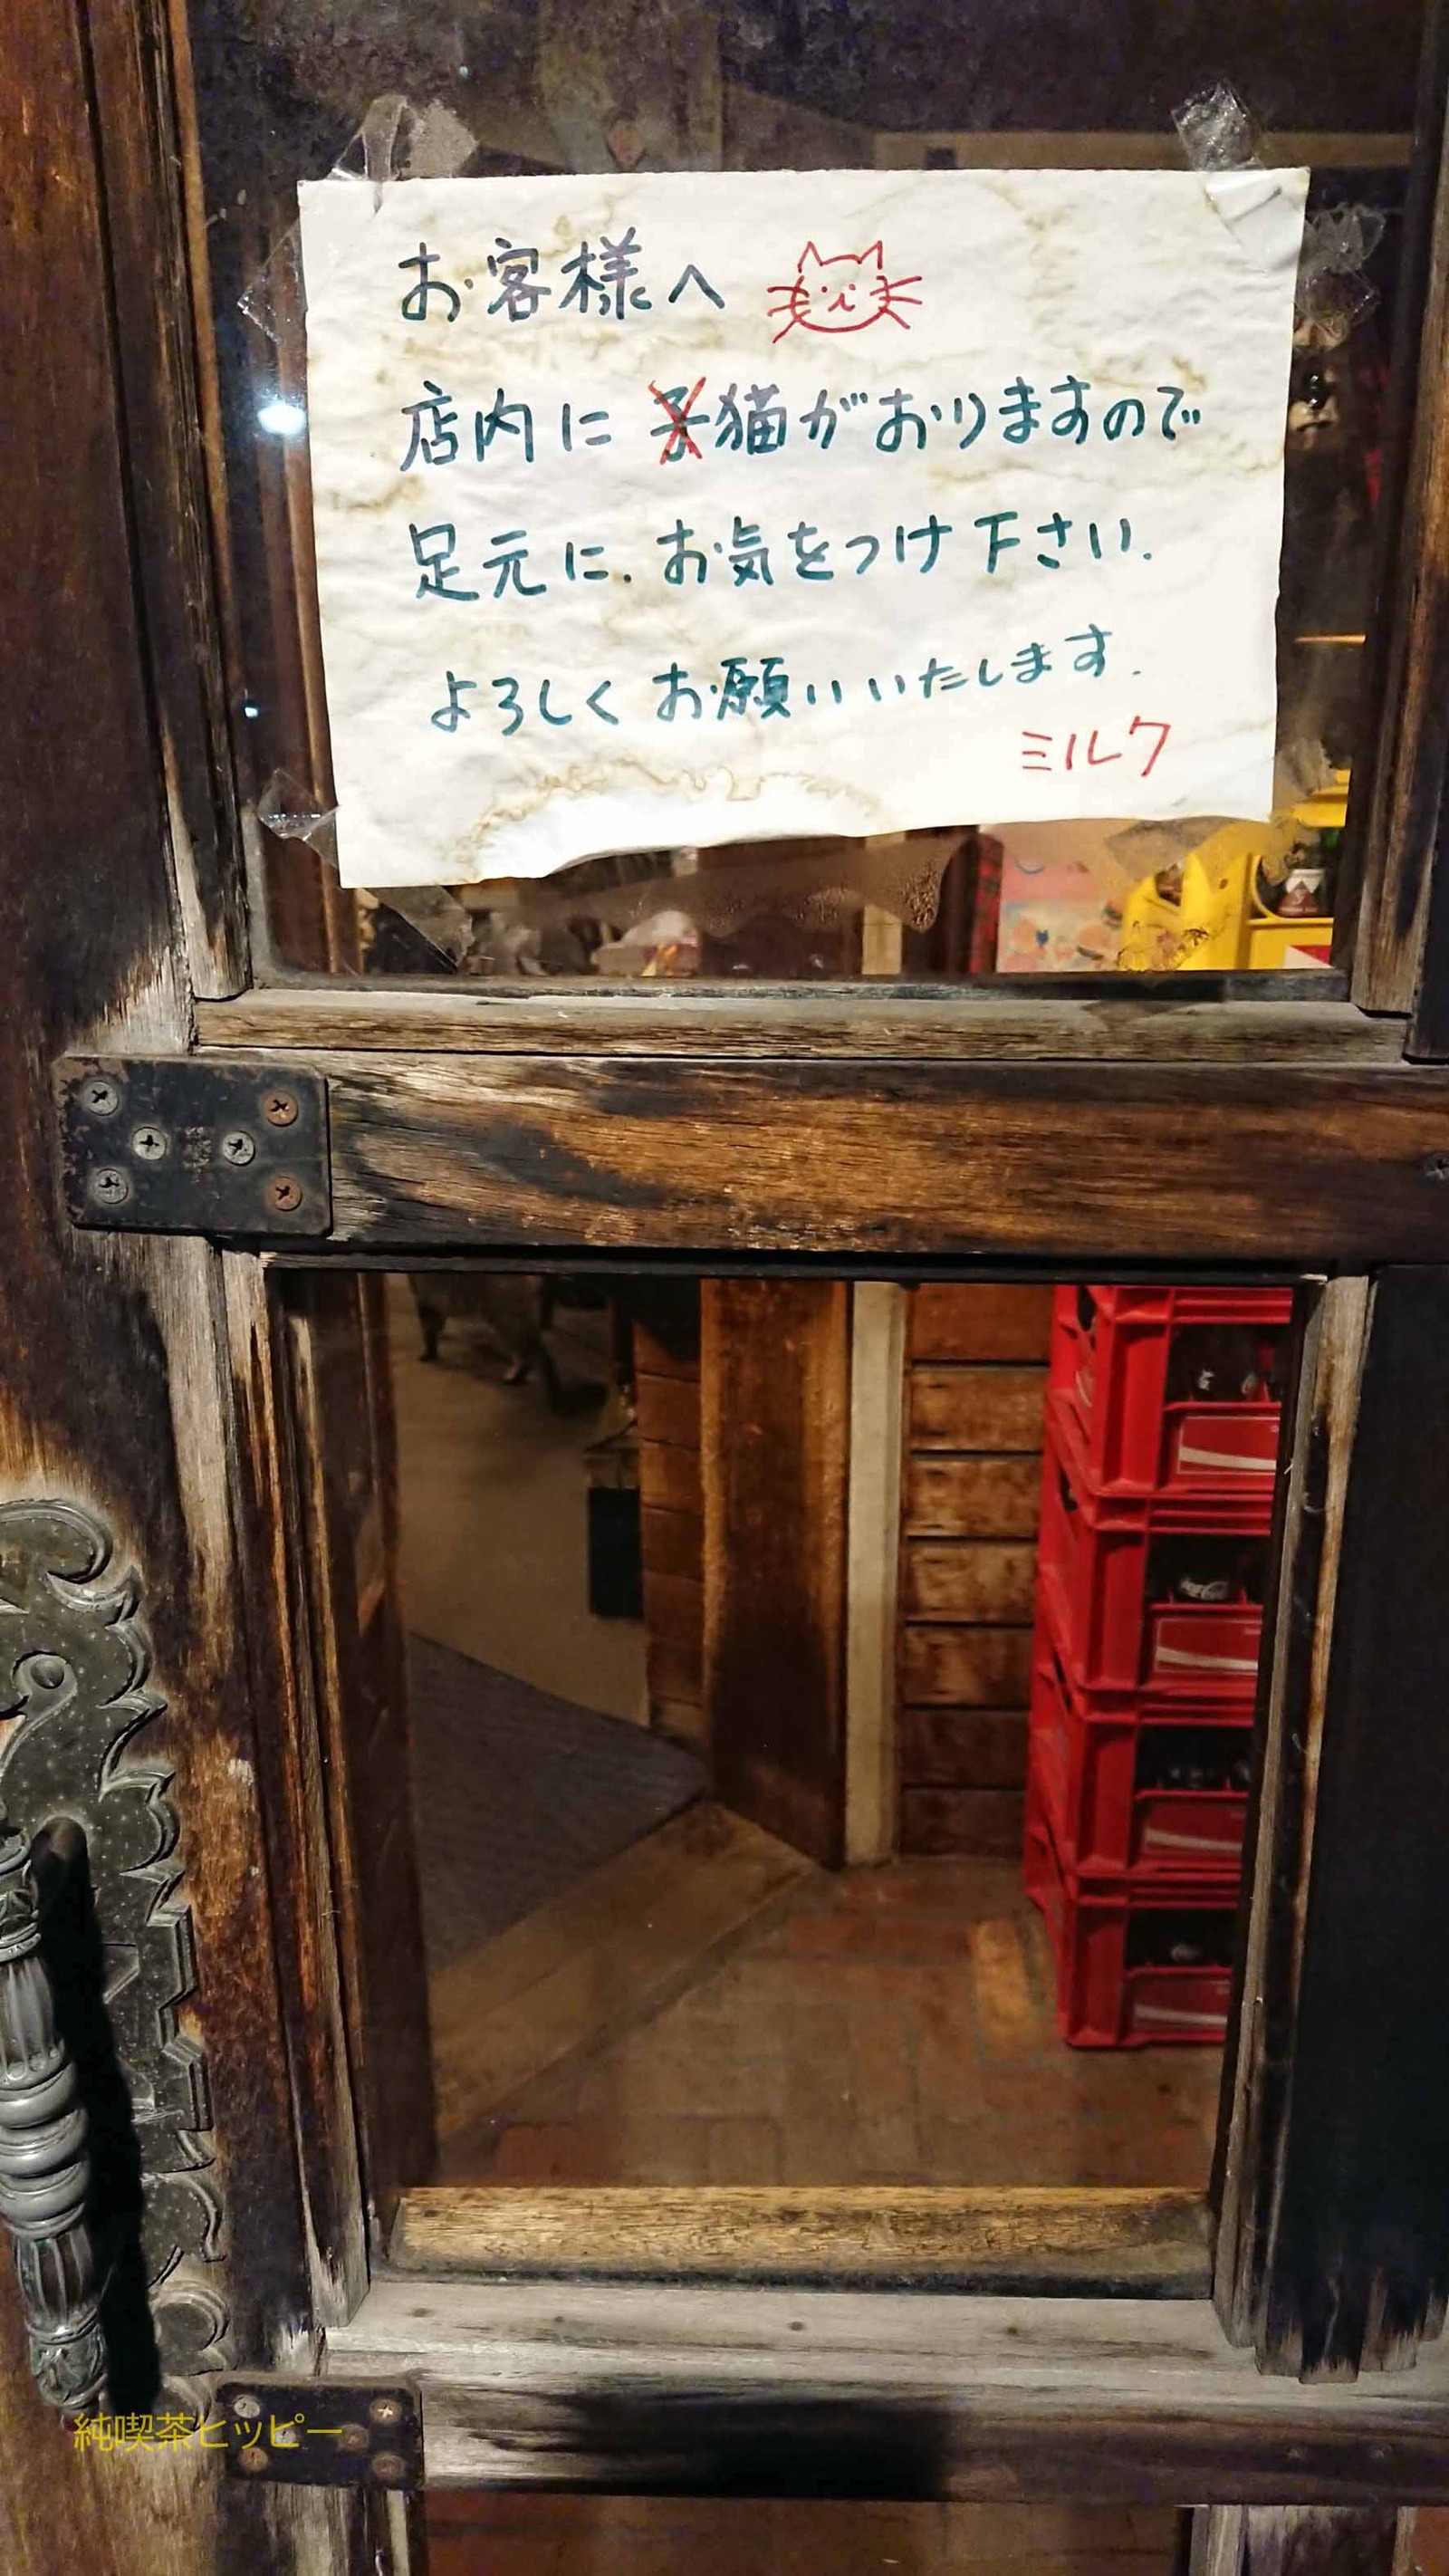 お客様へ
店内に子猫がおりますので
足元に、お気をつけ下さい.
よろしくお願いいたします.
ミルク
純喫茶ヒッピー